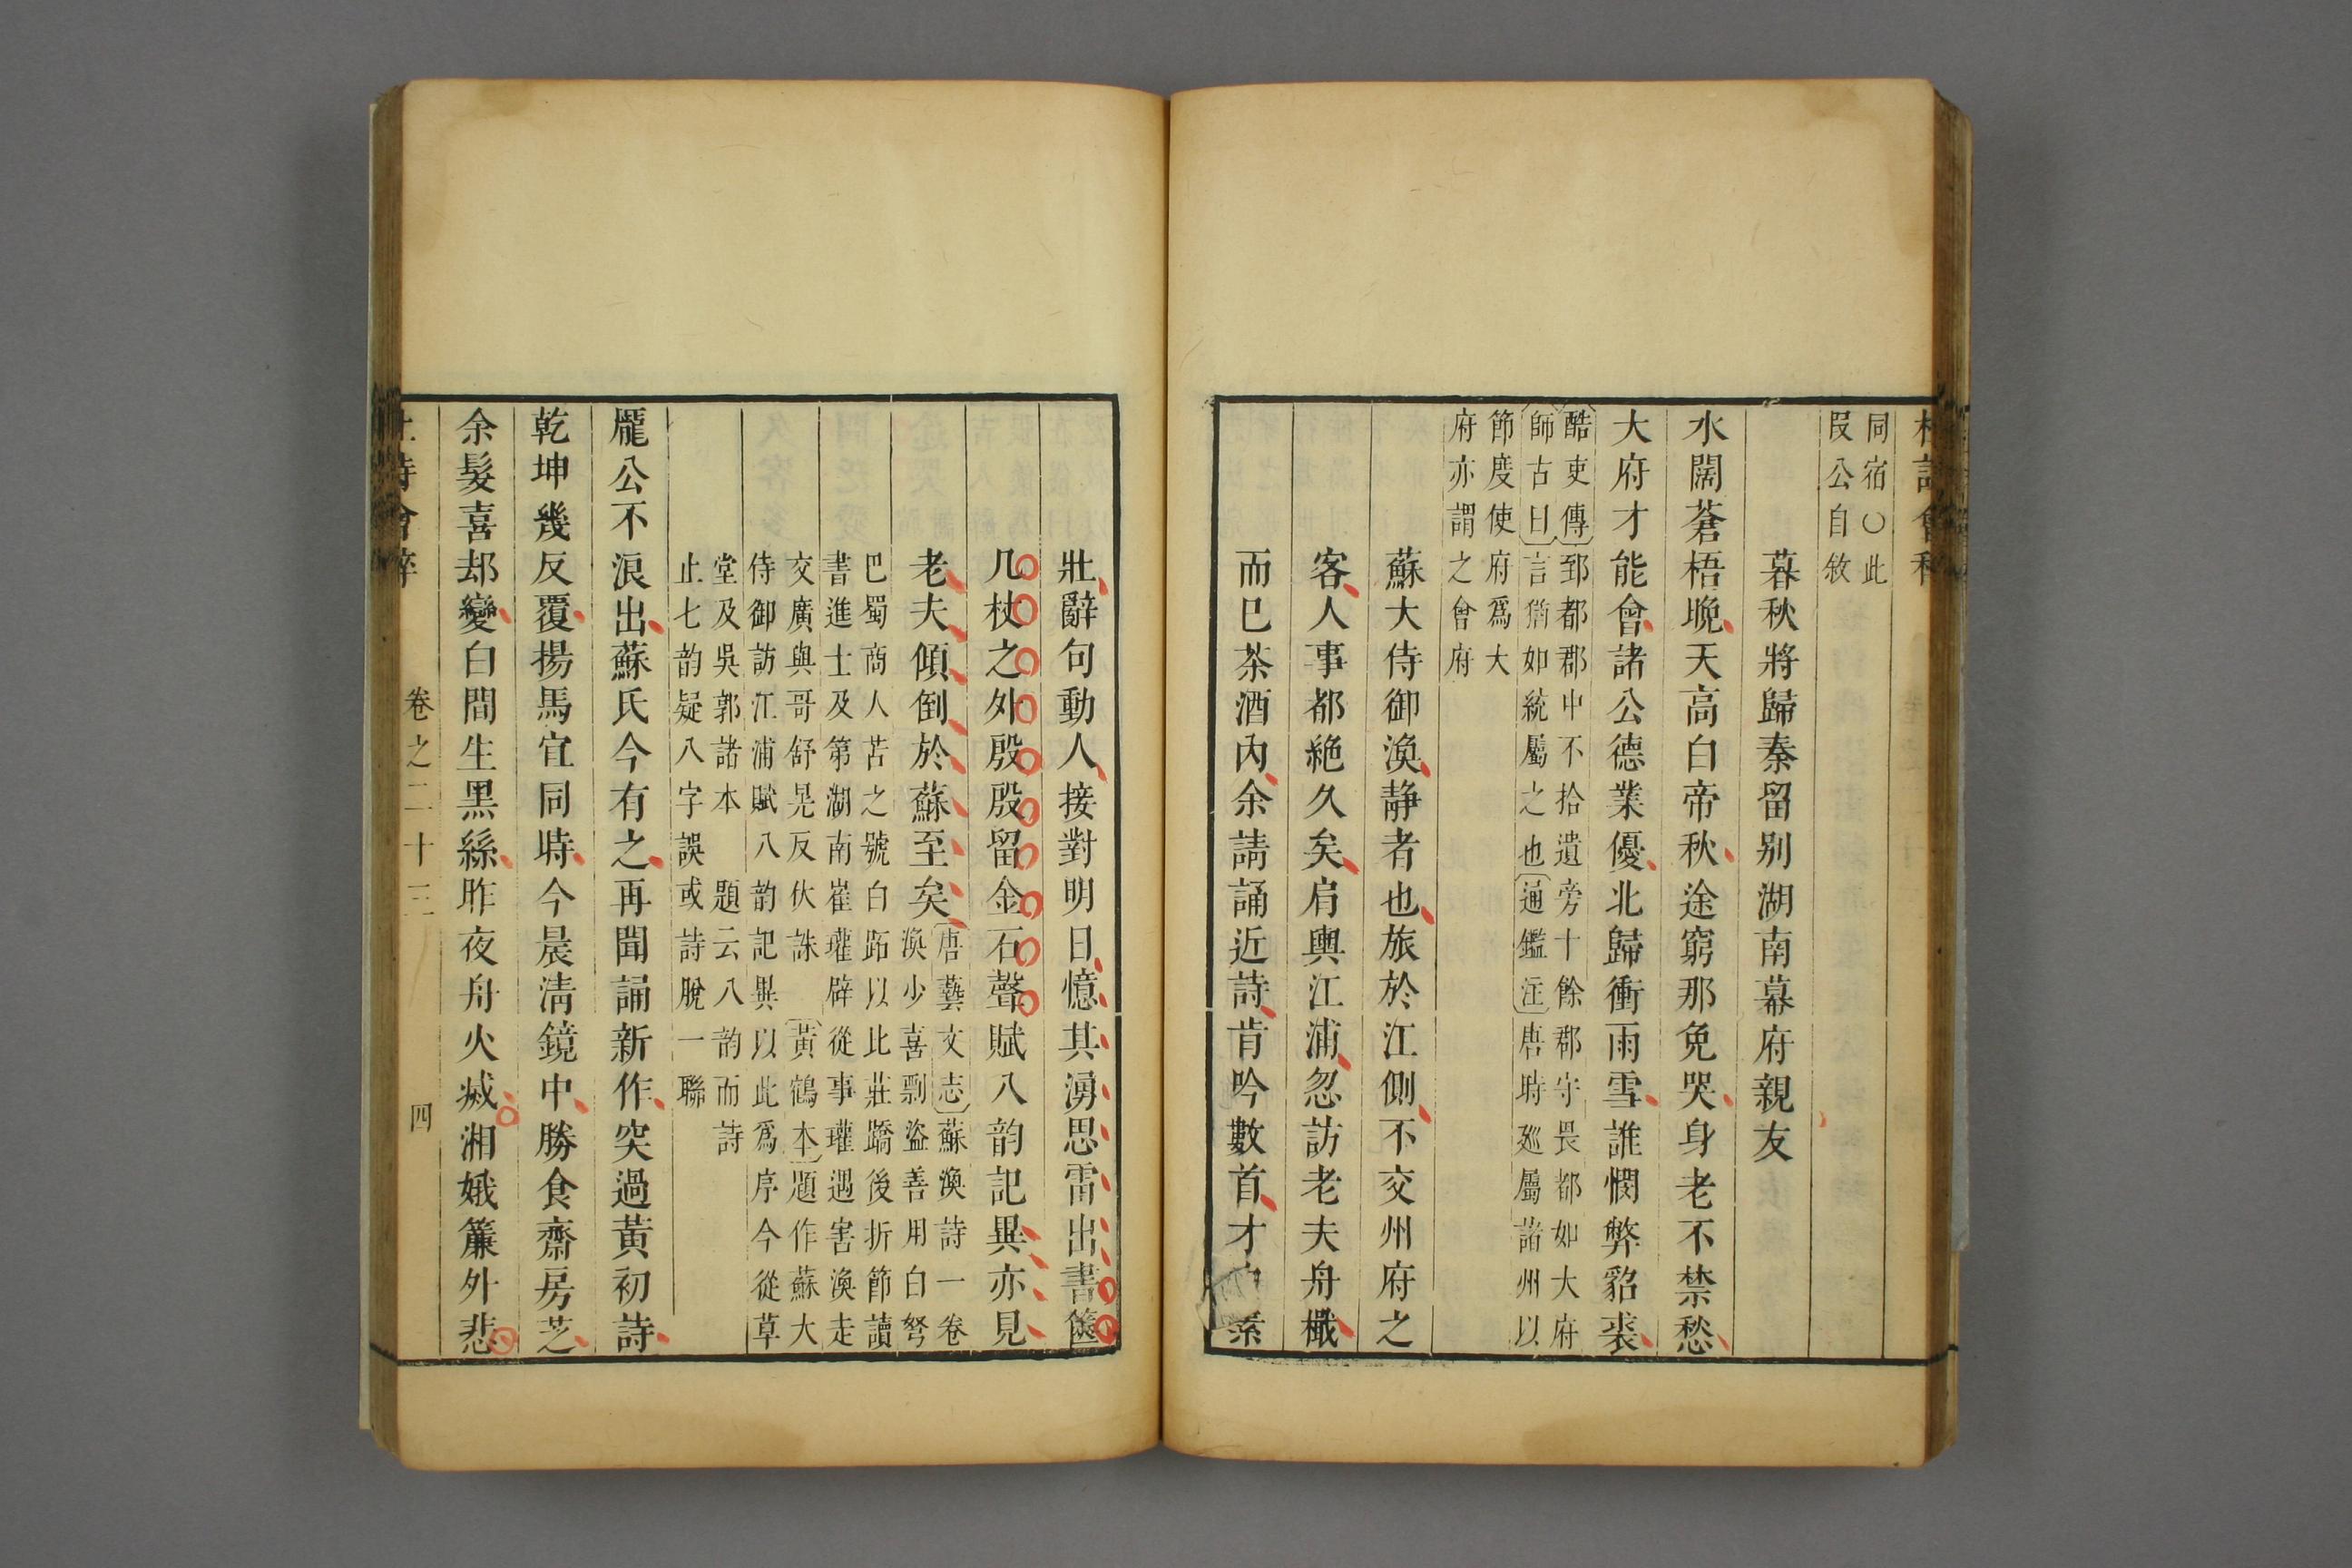 同宿〇此
段公自敘
暮秋將歸秦留别湖南幕府親友
水闊蒼梧晚天高白帝秋途窮那免哭身老不禁愁
大府才能會諸公德業優北歸衝雨雪誰憫弊貂裘
酷吏傳郅都郡中不拾遺旁十餘郡守畏都如大府
師古曰言猶如統屬之也通鑑注唐時廵屬諸州以
節度使府爲大
府亦謂之會府
蘇大侍御渙静者也旅於江側不交州府之
客人事都絶久矣肩輿江浦忽訪老夫舟檝
而已茶酒內余請誦近詩肯吟數首才素
壯辭句動人接對明日憶其湧思雷出書篋
几杖之外殷殷留金石聲賦八韵記異亦見
老夫傾倒於蘇至矣
唐藝文志蘇渙詩一卷
渙少喜剽盗善用白弩
巴蜀商人苦之號白跖以比莊蹻後折節讀
書進士及第湖南崔瓘辟從事瓘遇害渙走
交廣與哥舒晃反伏誅 黃鶴本題作蘇大
侍御訪江浦賦八韵記異以此爲序今從草
堂及吳郭諸本 題云八韵而詩
止七韵疑八字誤或詩脫一聯
龐公不浪出蘇氏今有之再聞誦新作突過黃初詩
乾坤幾反覆揚馬宜同時今晨清鏡中勝食齋房芝
余髮喜却變白間生黑絲昨夜舟火滅湘娥簾外悲
卷之二十三
四